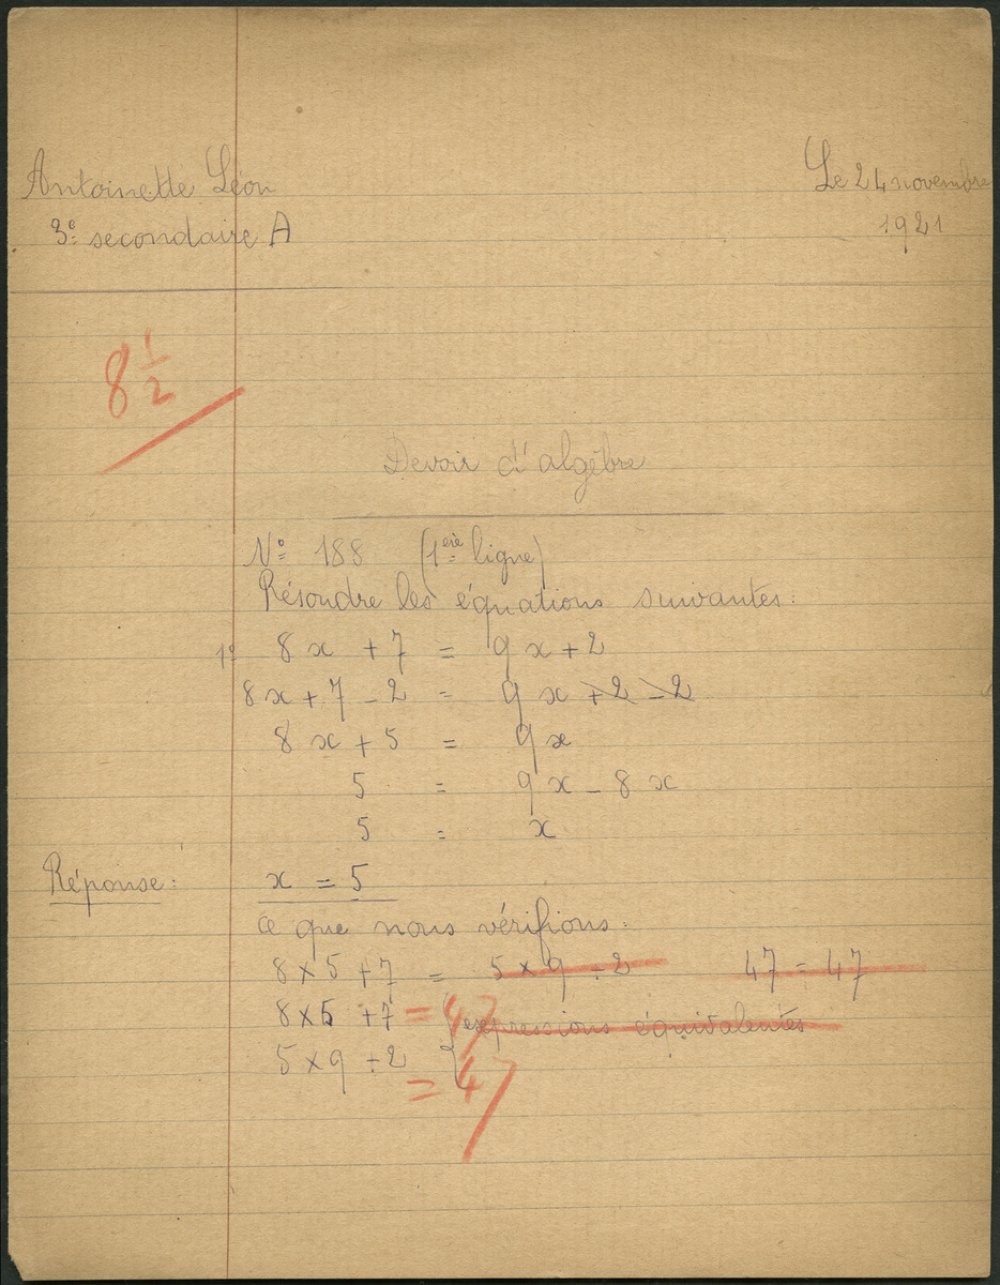 Antoinette Léon
Le 24 novembre
3e secondaire A
1921
8 1/2
Devoir d'algèbre
No 188 (1ère ligne)
Résoudre les équations suivantes:
1o 8x + 7 = 9x + 2
8x + 7 - 2 = 9x + 2 - 2
8x + 5 = 9x
5 = 9x - 8x
5 = x
Réponse: x = 5
ce que nous vérifions:
8 x 5 + 7 = 5 x 9 + 2 47 = 47
8 x 5 + 7 = 47 { expressions équivalentes
5 x 9 + 2 = 47